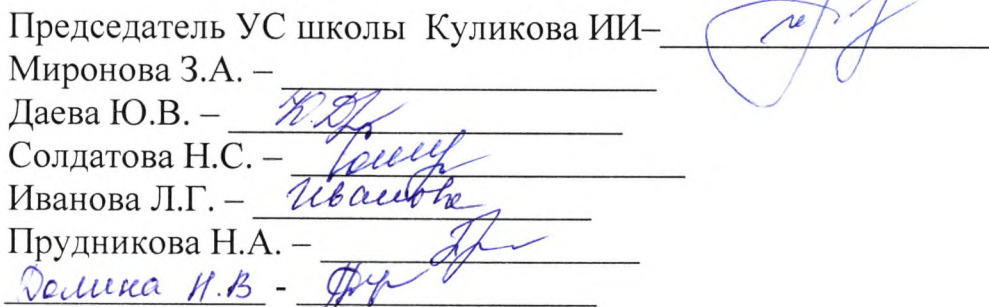 Председатель УС школы Куликова ИИ–
Миронова З.А. –
Даева Ю.В. –
Солдатова Н.С. –
Иванова Л.Г. – Иванова
Прудникова Н.А. –
Долина Н.В -